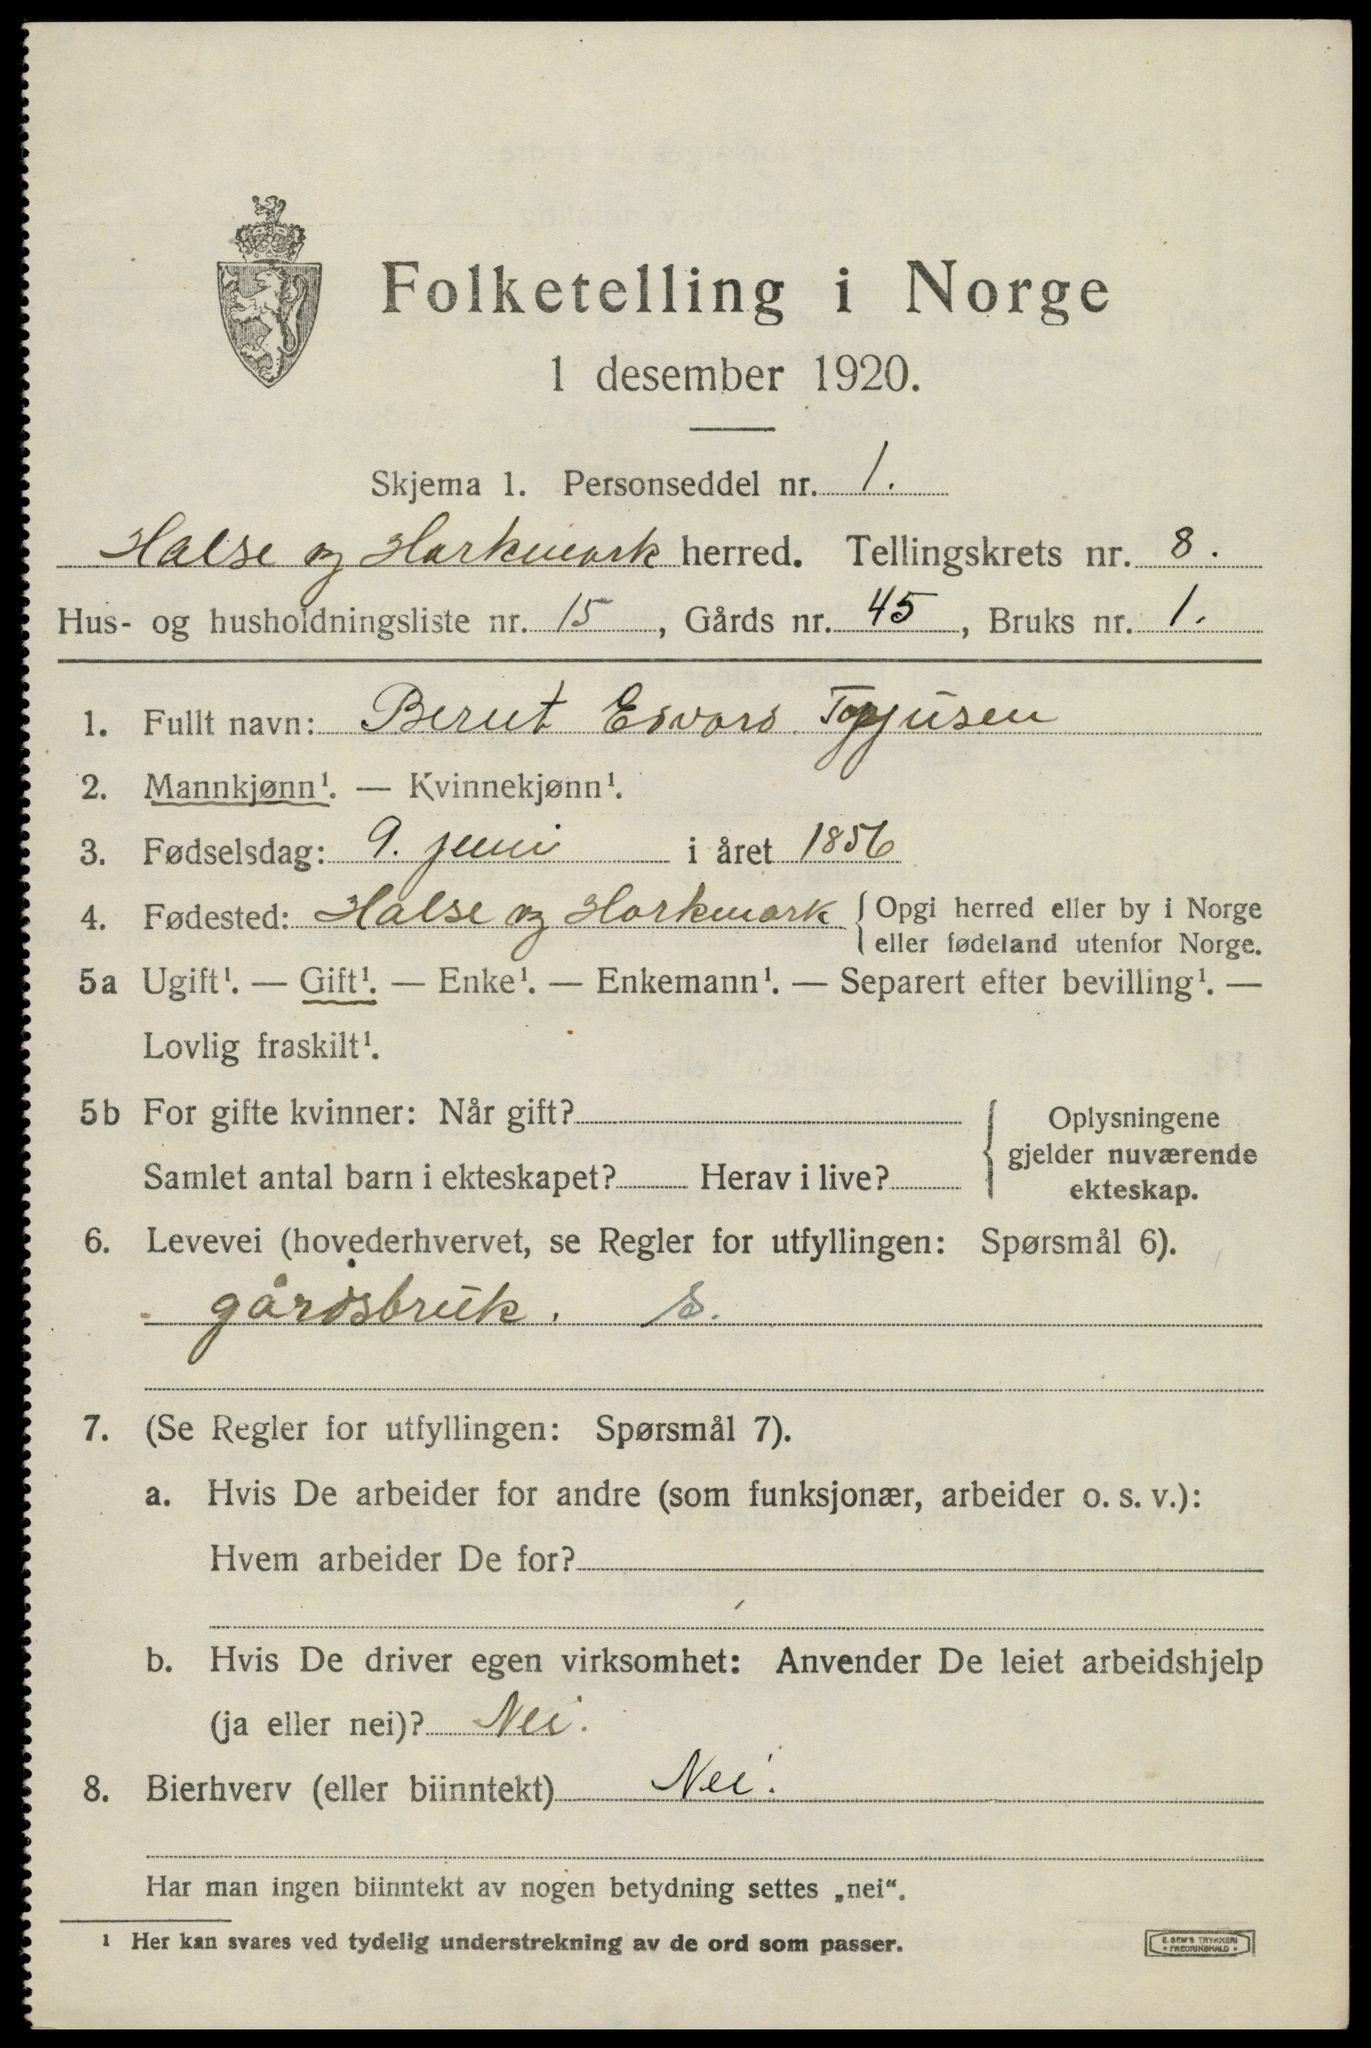 Folketelling i Norge
1 desember 1920.
Skjema 1. Personseddel nr. 1.
Halse og Harkmark herred. Tellingskrets nr. 8.
Hus- og husholdningsliste nr. 15, Gårds nr. 45, Bruks nr. 1.
1. Fullt navn: Bernt Edvard Torjusen
2. Mannkjønn¹. — Kvinnekjønn¹.
3. Fødselsdag: 9. juni i året 1856
4. Fødested: Halse og Harkmark { Opgi herred eller by i Norge
eller fødeland utenfor Norge.
5a Ugift¹. — Gift¹. — Enke¹. — Enkemann¹. — Separert efter bevilling¹. —
Lovlig fraskilt¹.
5b For gifte kvinner: Når gift?
Samlet antal barn i ekteskapet? Herav i live?
Oplysningene
gjelder nuværende
ekteskap.
6. Levevei (hovederhvervet, se Regler for utfyllingen: Spørsmål 6).
gårdsbruk. S.
7. (Se Regler for utfyllingen: Spørsmål 7).
a. Hvis De arbeider for andre (som funksjonær, arbeider o. s. v.):
Hvem arbeider De for?
b. Hvis De driver egen virksomhet: Anvender De leiet arbeidshjelp
(ja eller nei)? Nei.
8. Bierhverv (eller biinntekt) Nei.
Har man ingen biinntekt av nogen betydning settes „nei“.
¹ Her kan svares ved tydelig understrekning av de ord som passer.
E. SEM'S TRYKKERI
* FREDRIKSHALD *